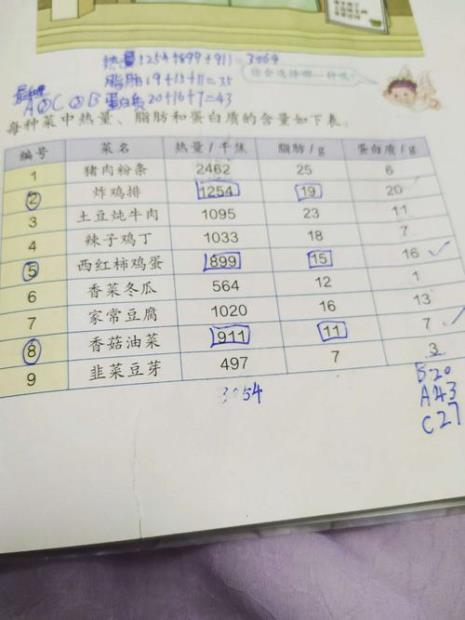 热量1254+899+911=3064
脂肪19+15+11=45
A②C②B 蛋白质20+16+7=43
每种菜中热量、脂肪和蛋白质的含量如下表。
编号 菜名 热量/千焦 脂肪/g 蛋白质/g
1 猪肉粉条 2462 25 6
2 炸鸡排 1254 19 20
3 土豆炖牛肉 1095 23 11
4 辣子鸡丁 1033 18 7
5 西红柿鸡蛋 899 15 16
6 香菜冬瓜 564 12 1
7 家常豆腐 1020 16 13
8 香菇油菜 911 11 7
9 韭菜豆芽 497 7 3
3054
B 20
A 43
C 27